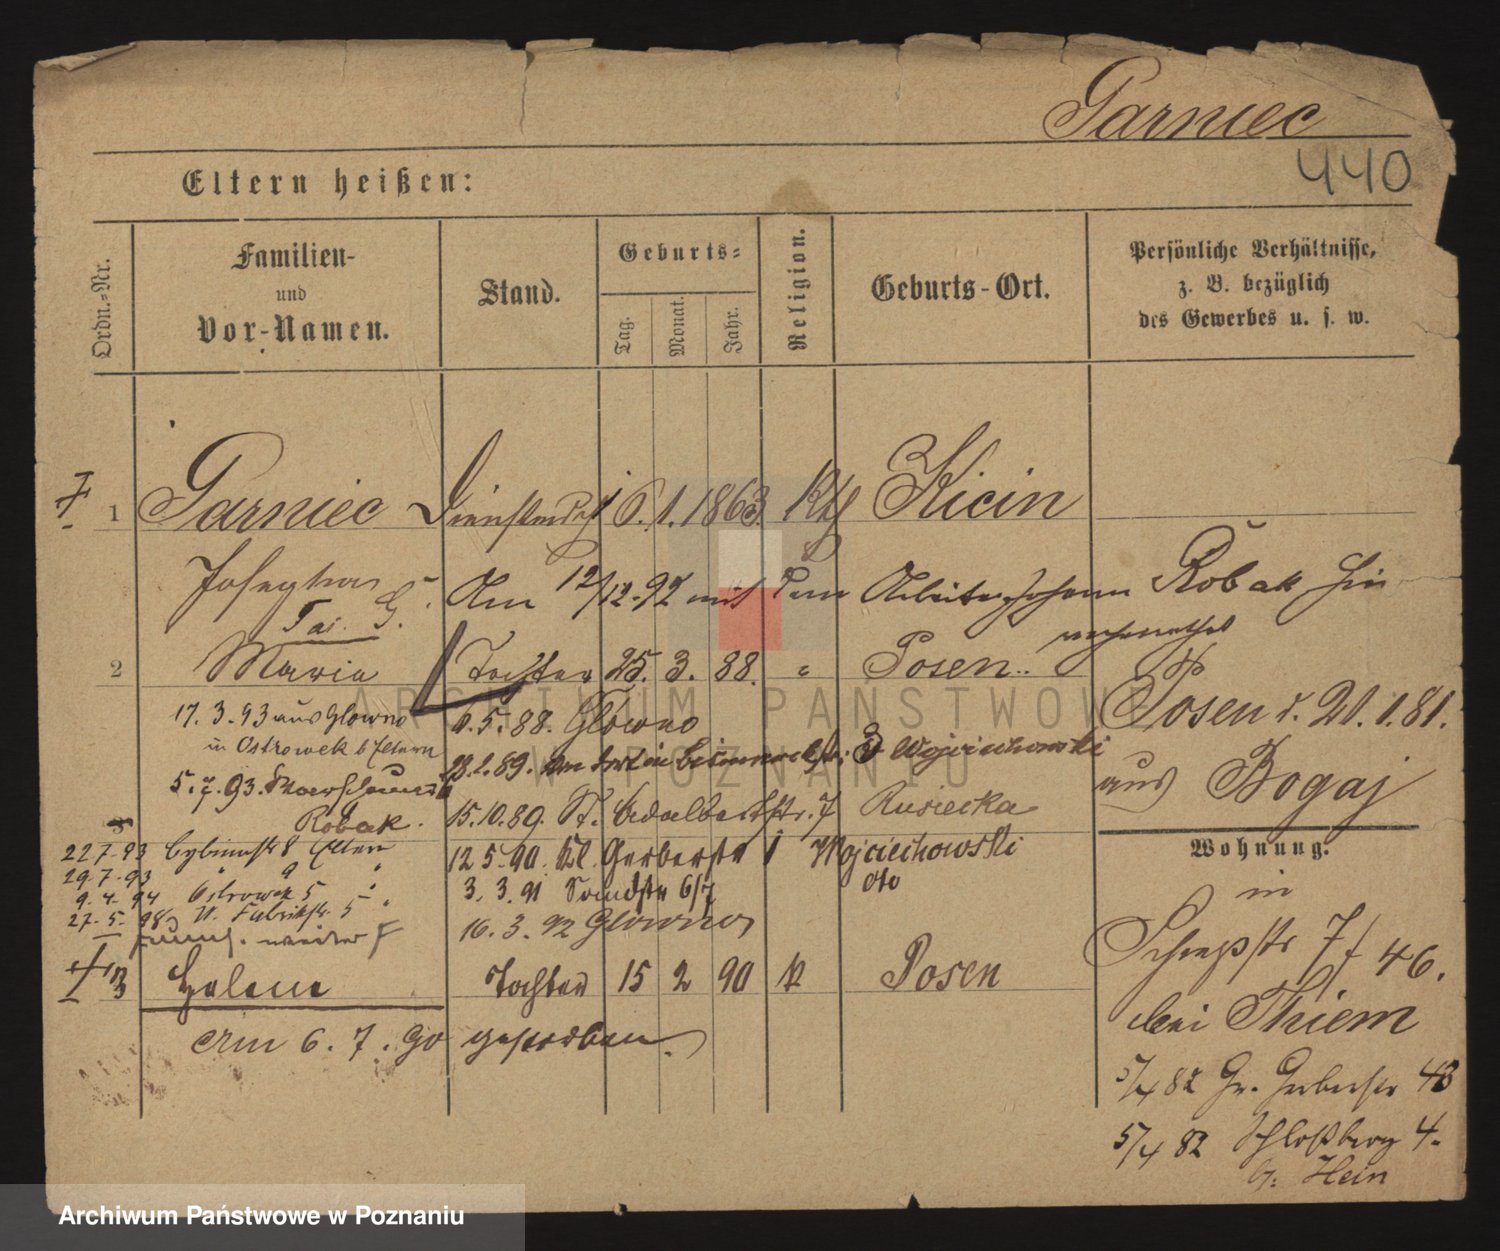 Garniec
440
Eltern heißen:
Ordn.-Nr.
Familien-
und
Vor-Namen.
Stand.
Geburts-
Tag.
Monat.
Jahr.
Religion.
Geburts-Ort.
Persönliche Verhältnisse,
z. B. bezüglich
des Gewerbes u. s. w.
1 Garniec 6. 1. 1863 Kth Kicin
Josepha
Am 12/12.92 mit dem Arbeiter Johann Robak hier
2 Maria Tochter 25. 3. 88. " Posen
Posen d. 21.1.81.
aus Bogaj
17. 3. 93 aus Glowno
in Ostrowek b Eltern
5. 7. 93.
Robak.
22 7. 93 8 Eltern
29. 7. 93 " 9 "
9. 4. 94 Ostrowek 5 "
27. 5. 98 N. Fabrikstr. 5 "
1.5.88. Glowno
Wojciechowski
15.10.89. St. Adalbertstr. 7 Rusiecka
12 5. 90. Kl. Gerberstr 1 Wojciechowski
3. 3. 91 6/7 dto
16. 3. 92 Glowno
3 Helene Tochter 15 2 90 k Posen
am 6. 7. 90 gestorben.
Wohnung.
in
46.
bei Thiem
5/4 82 Gr. Gerberstr 43
5/4 82 Schloßberg 4.
b. Hein
ARCHIWUM PAŃSTWOWE
W POZNANIU
Archiwum Państwowe w Poznaniu